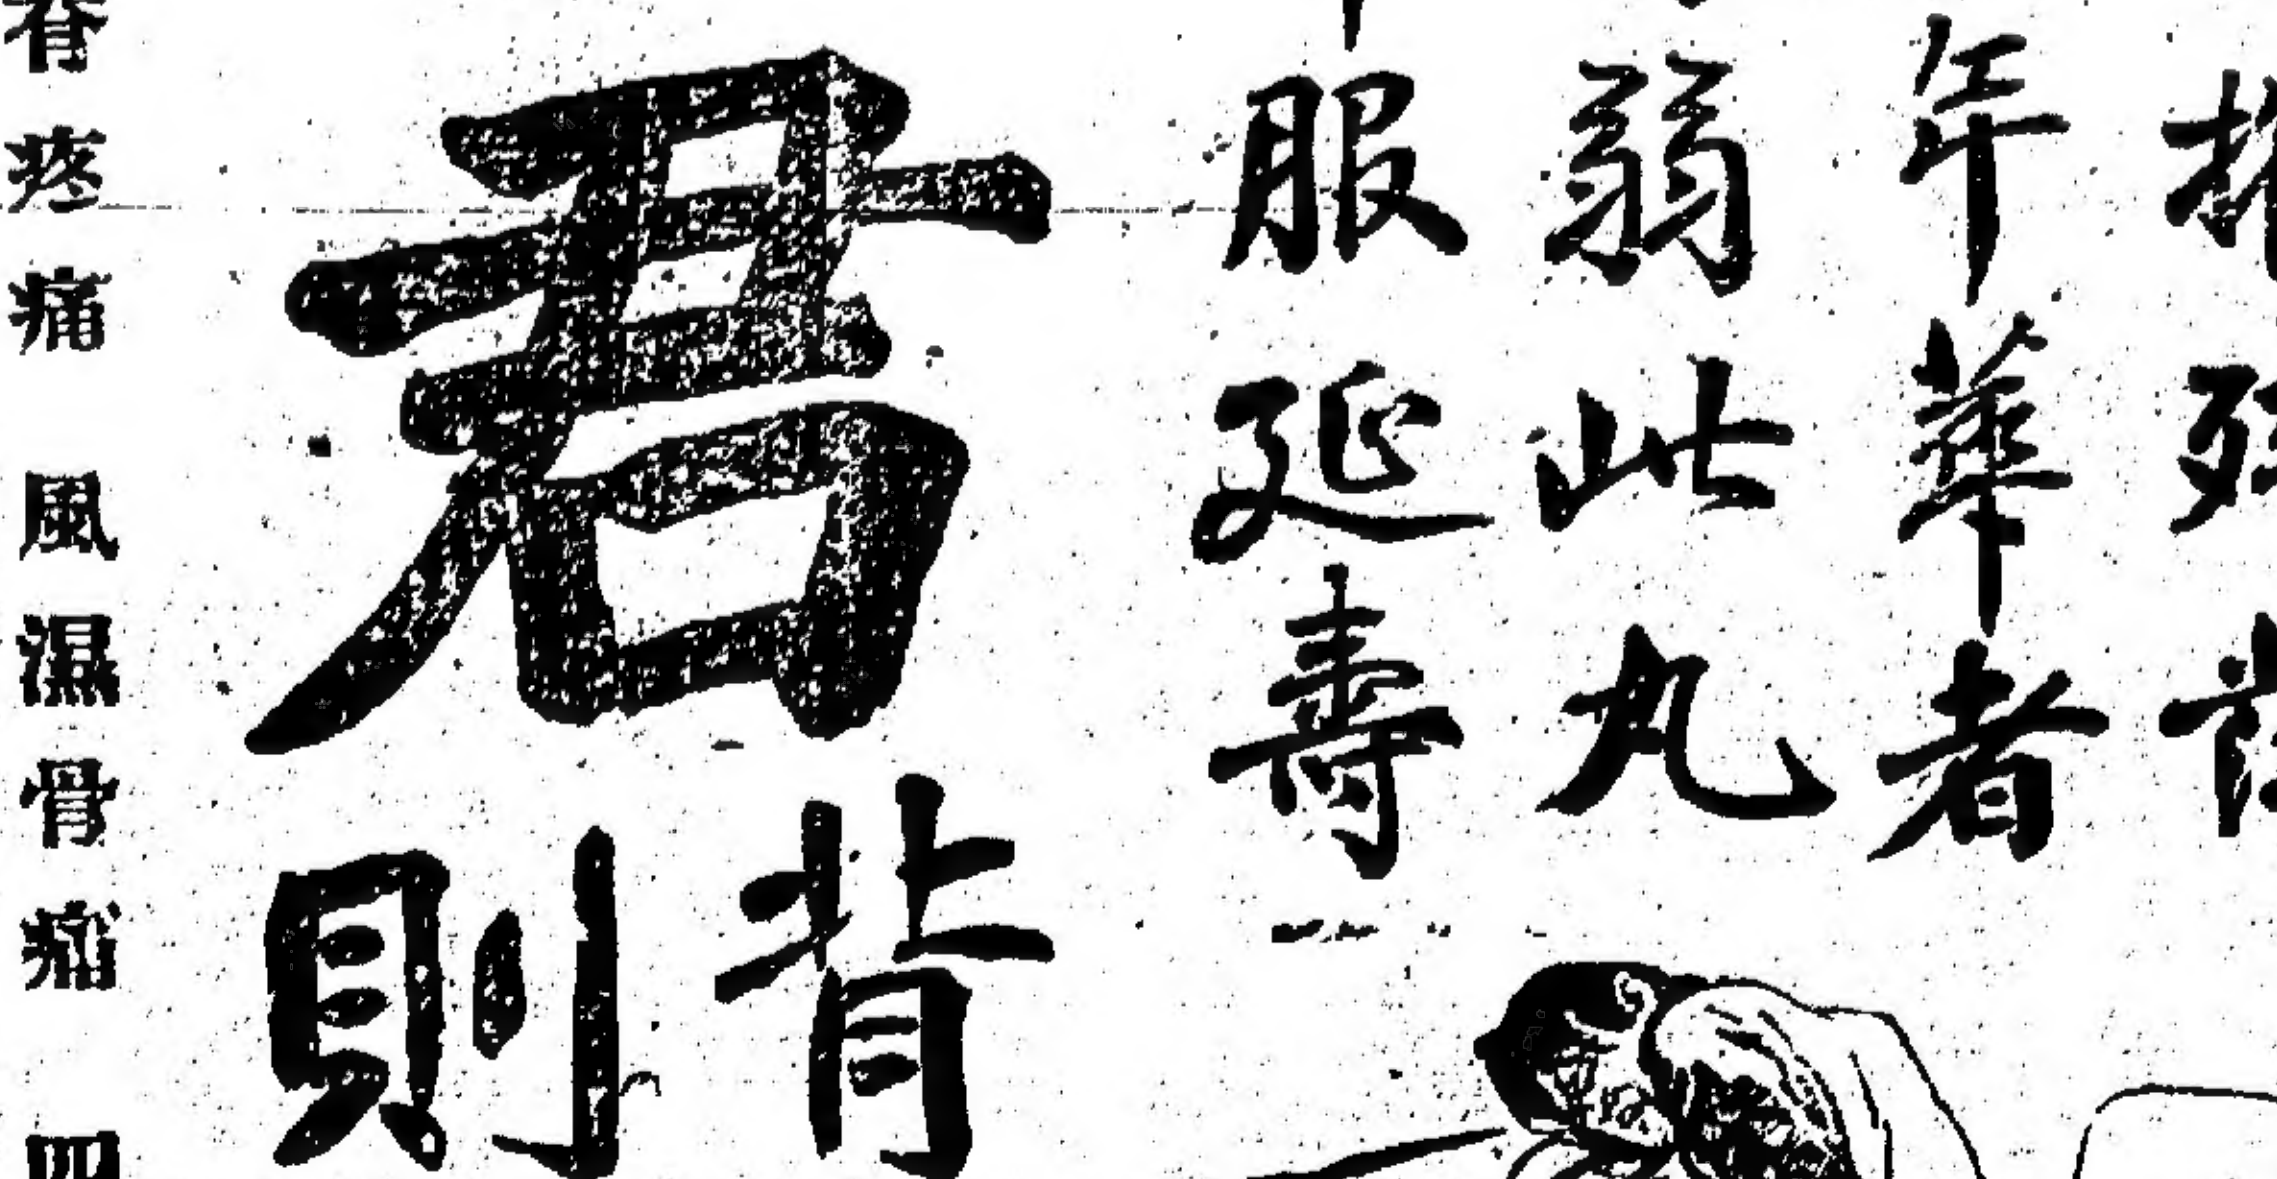 年華者
翁此丸
服延壽
君
背
則
脊疼痛 風濕骨痛 四